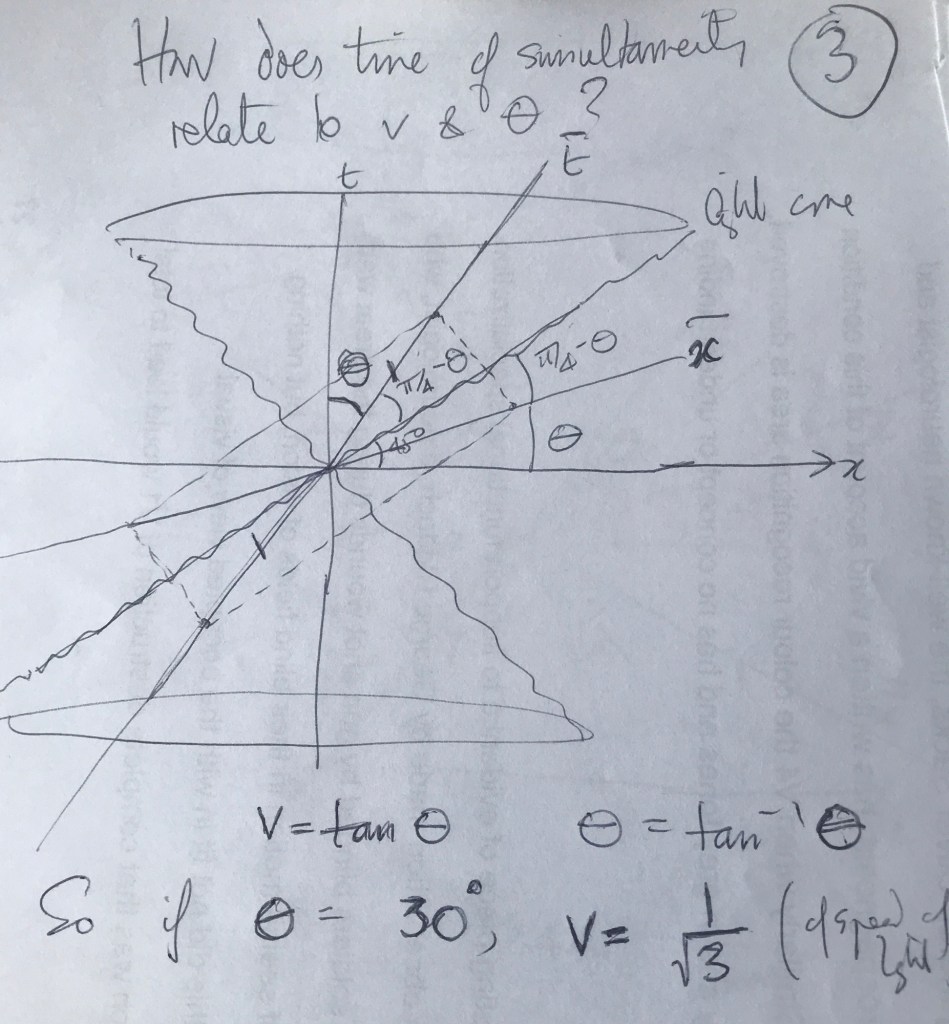 How does time of simultaneity
3
relate to v & θ ?
t
t̅
light cone
θ
π/4-θ
π/4-θ
x̅
45°
θ
x
V = tan θ θ = tan⁻¹ θ
So if θ = 30°, V = 1/√3 (of speed of
light